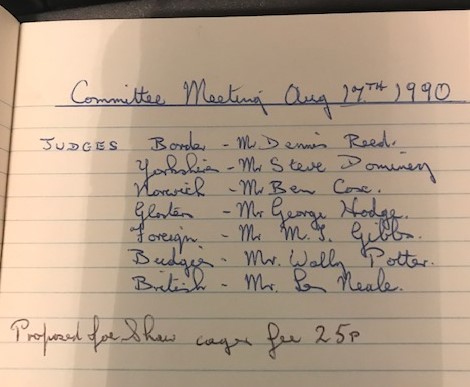 Committee Meeting Aug 17TH 1990
JUDGES Border - Mr Dennis Reed.
Yorkshire - Mr Steve Dominey
Norwich - Mr Ben Cox.
Gloster - Mr George Hodge.
Foreign - Mr M. J. Gibbs.
Budgies - Mr. Wally Potter.
British - Mr. Les Neale.
Proposed for Show cages fee 25p